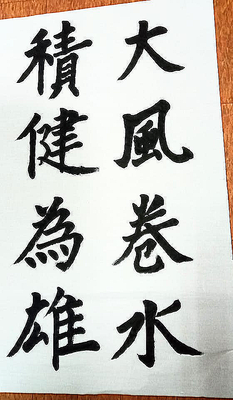 大風卷水
積健為雄